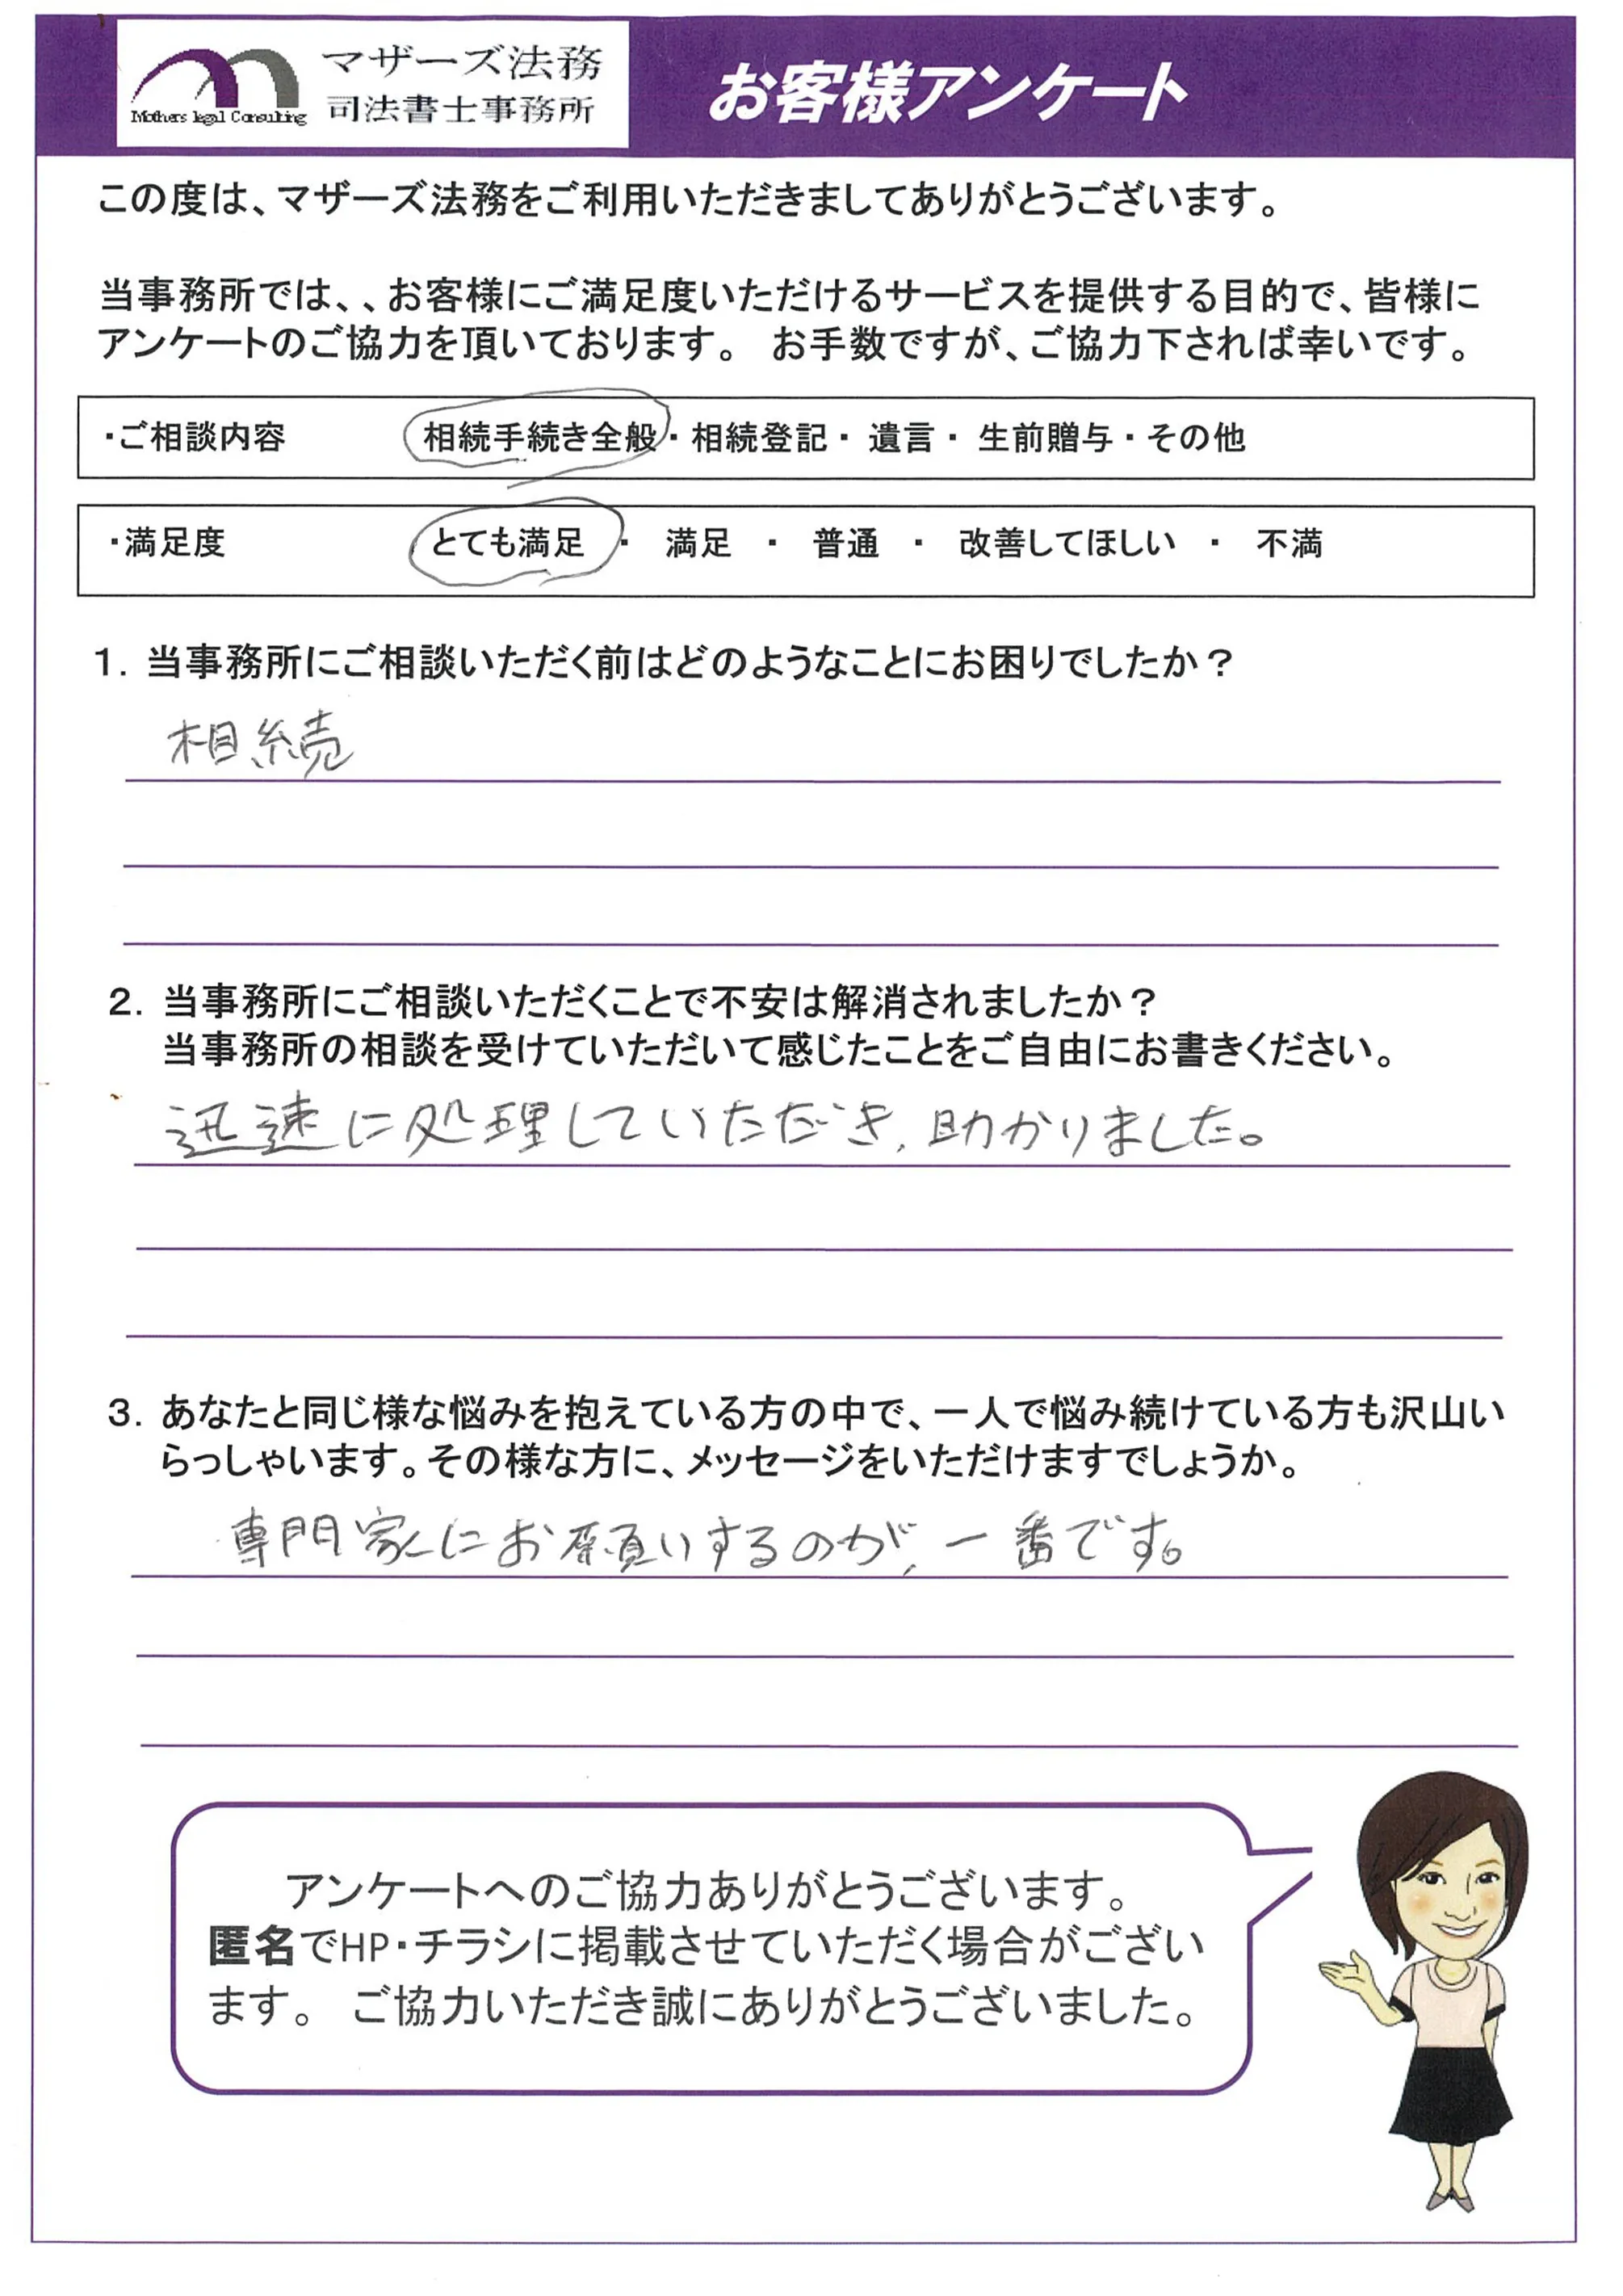 マザーズ法務
Mothers legal Consulting
司法書士事務所
お客様アンケート
この度は、マザーズ法務をご利用いただきましてありがとうございます。
当事務所では、、お客様にご満足度いただけるサービスを提供する目的で、皆様に
アンケートのご協力を頂いております。　お手数ですが、ご協力下されば幸いです。
・ご相談内容　相続手続き全般・相続登記・遺言・生前贈与・その他
・満足度　とても満足・満足・普通・改善してほしい・不満
1．当事務所にご相談いただく前はどのようなことにお困りでしたか？
相続
2．当事務所にご相談いただくことで不安は解消されましたか？
当事務所の相談を受けていただいて感じたことをご自由にお書きください。
迅速に処理していただき、助かりました。
3．あなたと同じ様な悩みを抱えている方の中で、一人で悩み続けている方も沢山い
らっしゃいます。その様な方に、メッセージをいただけますでしょうか。
専門家にお願いするのが、一番です。
アンケートへのご協力ありがとうございます。
匿名でHP・チラシに掲載させていただく場合がござい
ます。　ご協力いただき誠にありがとうございました。